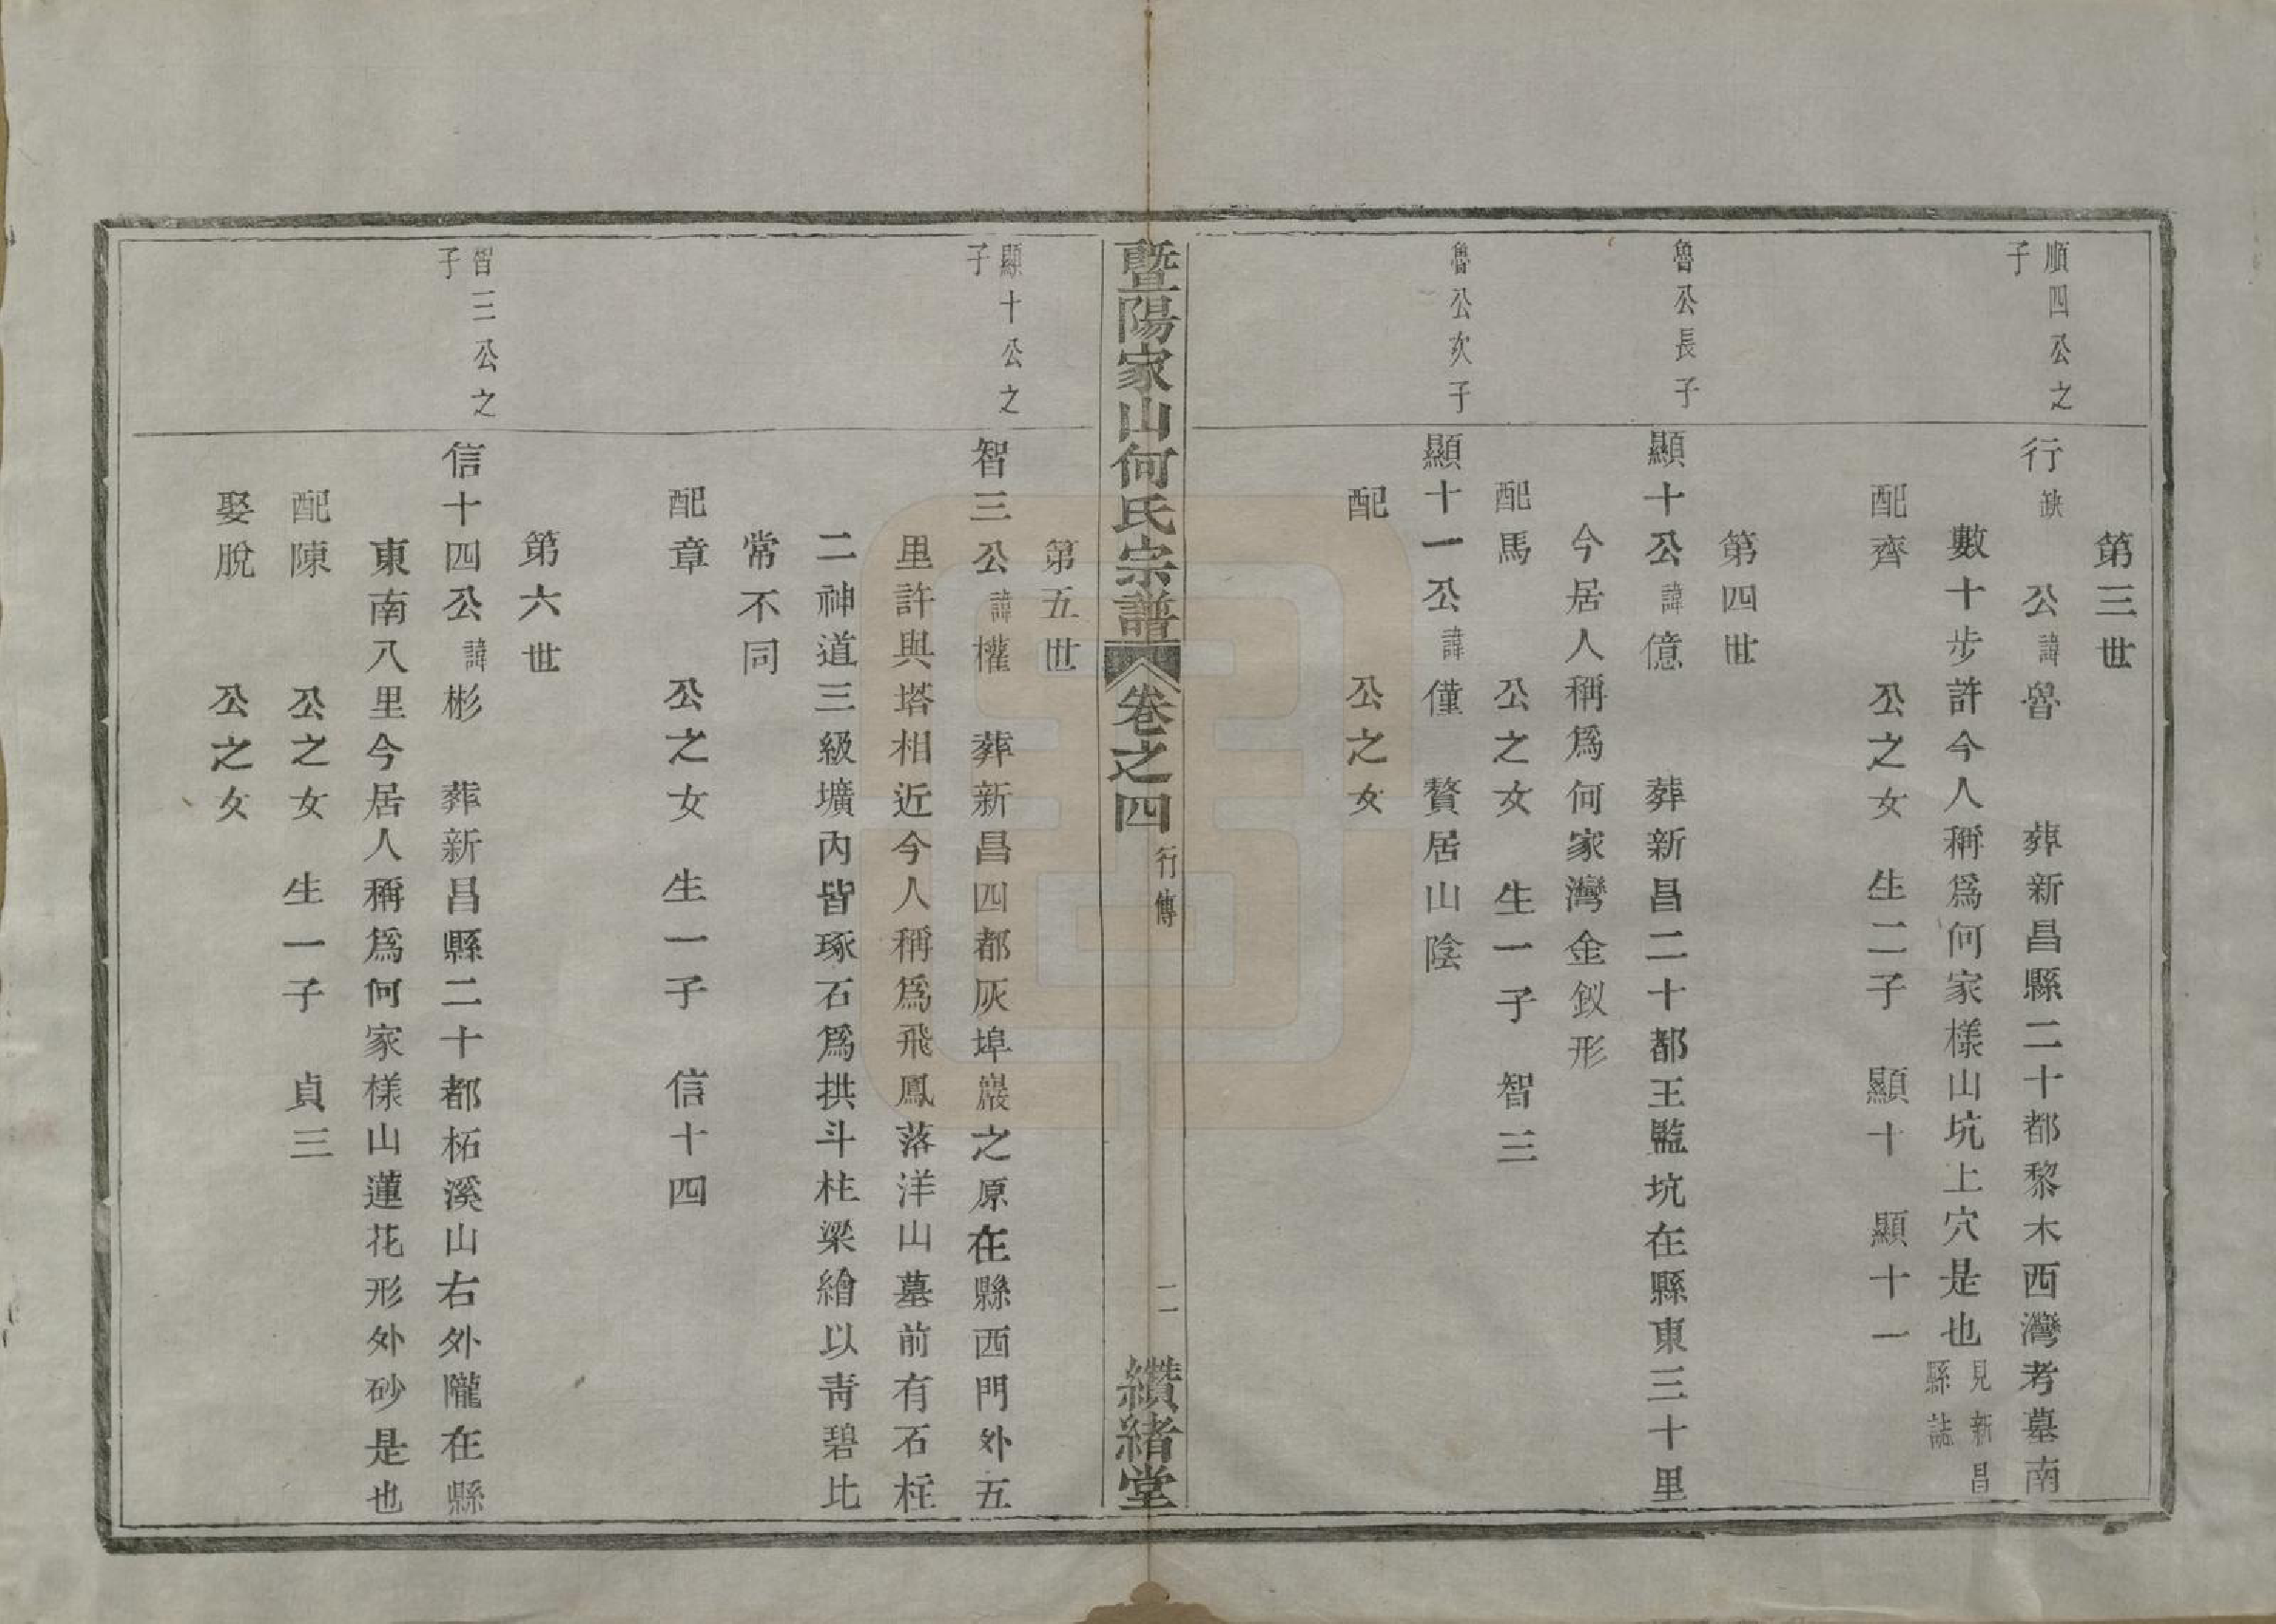 第三世
順四公之
子
行缺 公諱魯 葬新昌縣二十都黎木西灣考墓南
數十步許今人稱爲何家樣山坑上穴是也見新昌
縣誌
配齊 公之女 生二子 顯十 顯十一
第四世
魯公長子
顯十公諱億 葬新昌二十都王監坑在縣東三十里
今居人稱爲何家灣金釵形
配馬 公之女 生一子 智三
魯公次子
顯十一公諱僅 贅居山陰
配 公之女
暨陽家山何氏宗譜 卷之四 行傳 二 纘緒堂
第五世
顯十公之
子
智三公諱權 葬新昌四都灰埠巖之原在縣西門外五
里許與塔相近今人稱爲飛鳳落洋山墓前有石柱
二神道三級壙內皆琢石爲拱斗柱梁繪以靑碧比
常不同
配章 公之女 生一子 信十四
第六世
智三公之
子
信十四公諱彬 葬新昌縣二十都柘溪山右外隴在縣
東南八里今居人稱爲何家樣山蓮花形外砂是也
配陳 公之女 生一子 貞三
娶脫 公之女